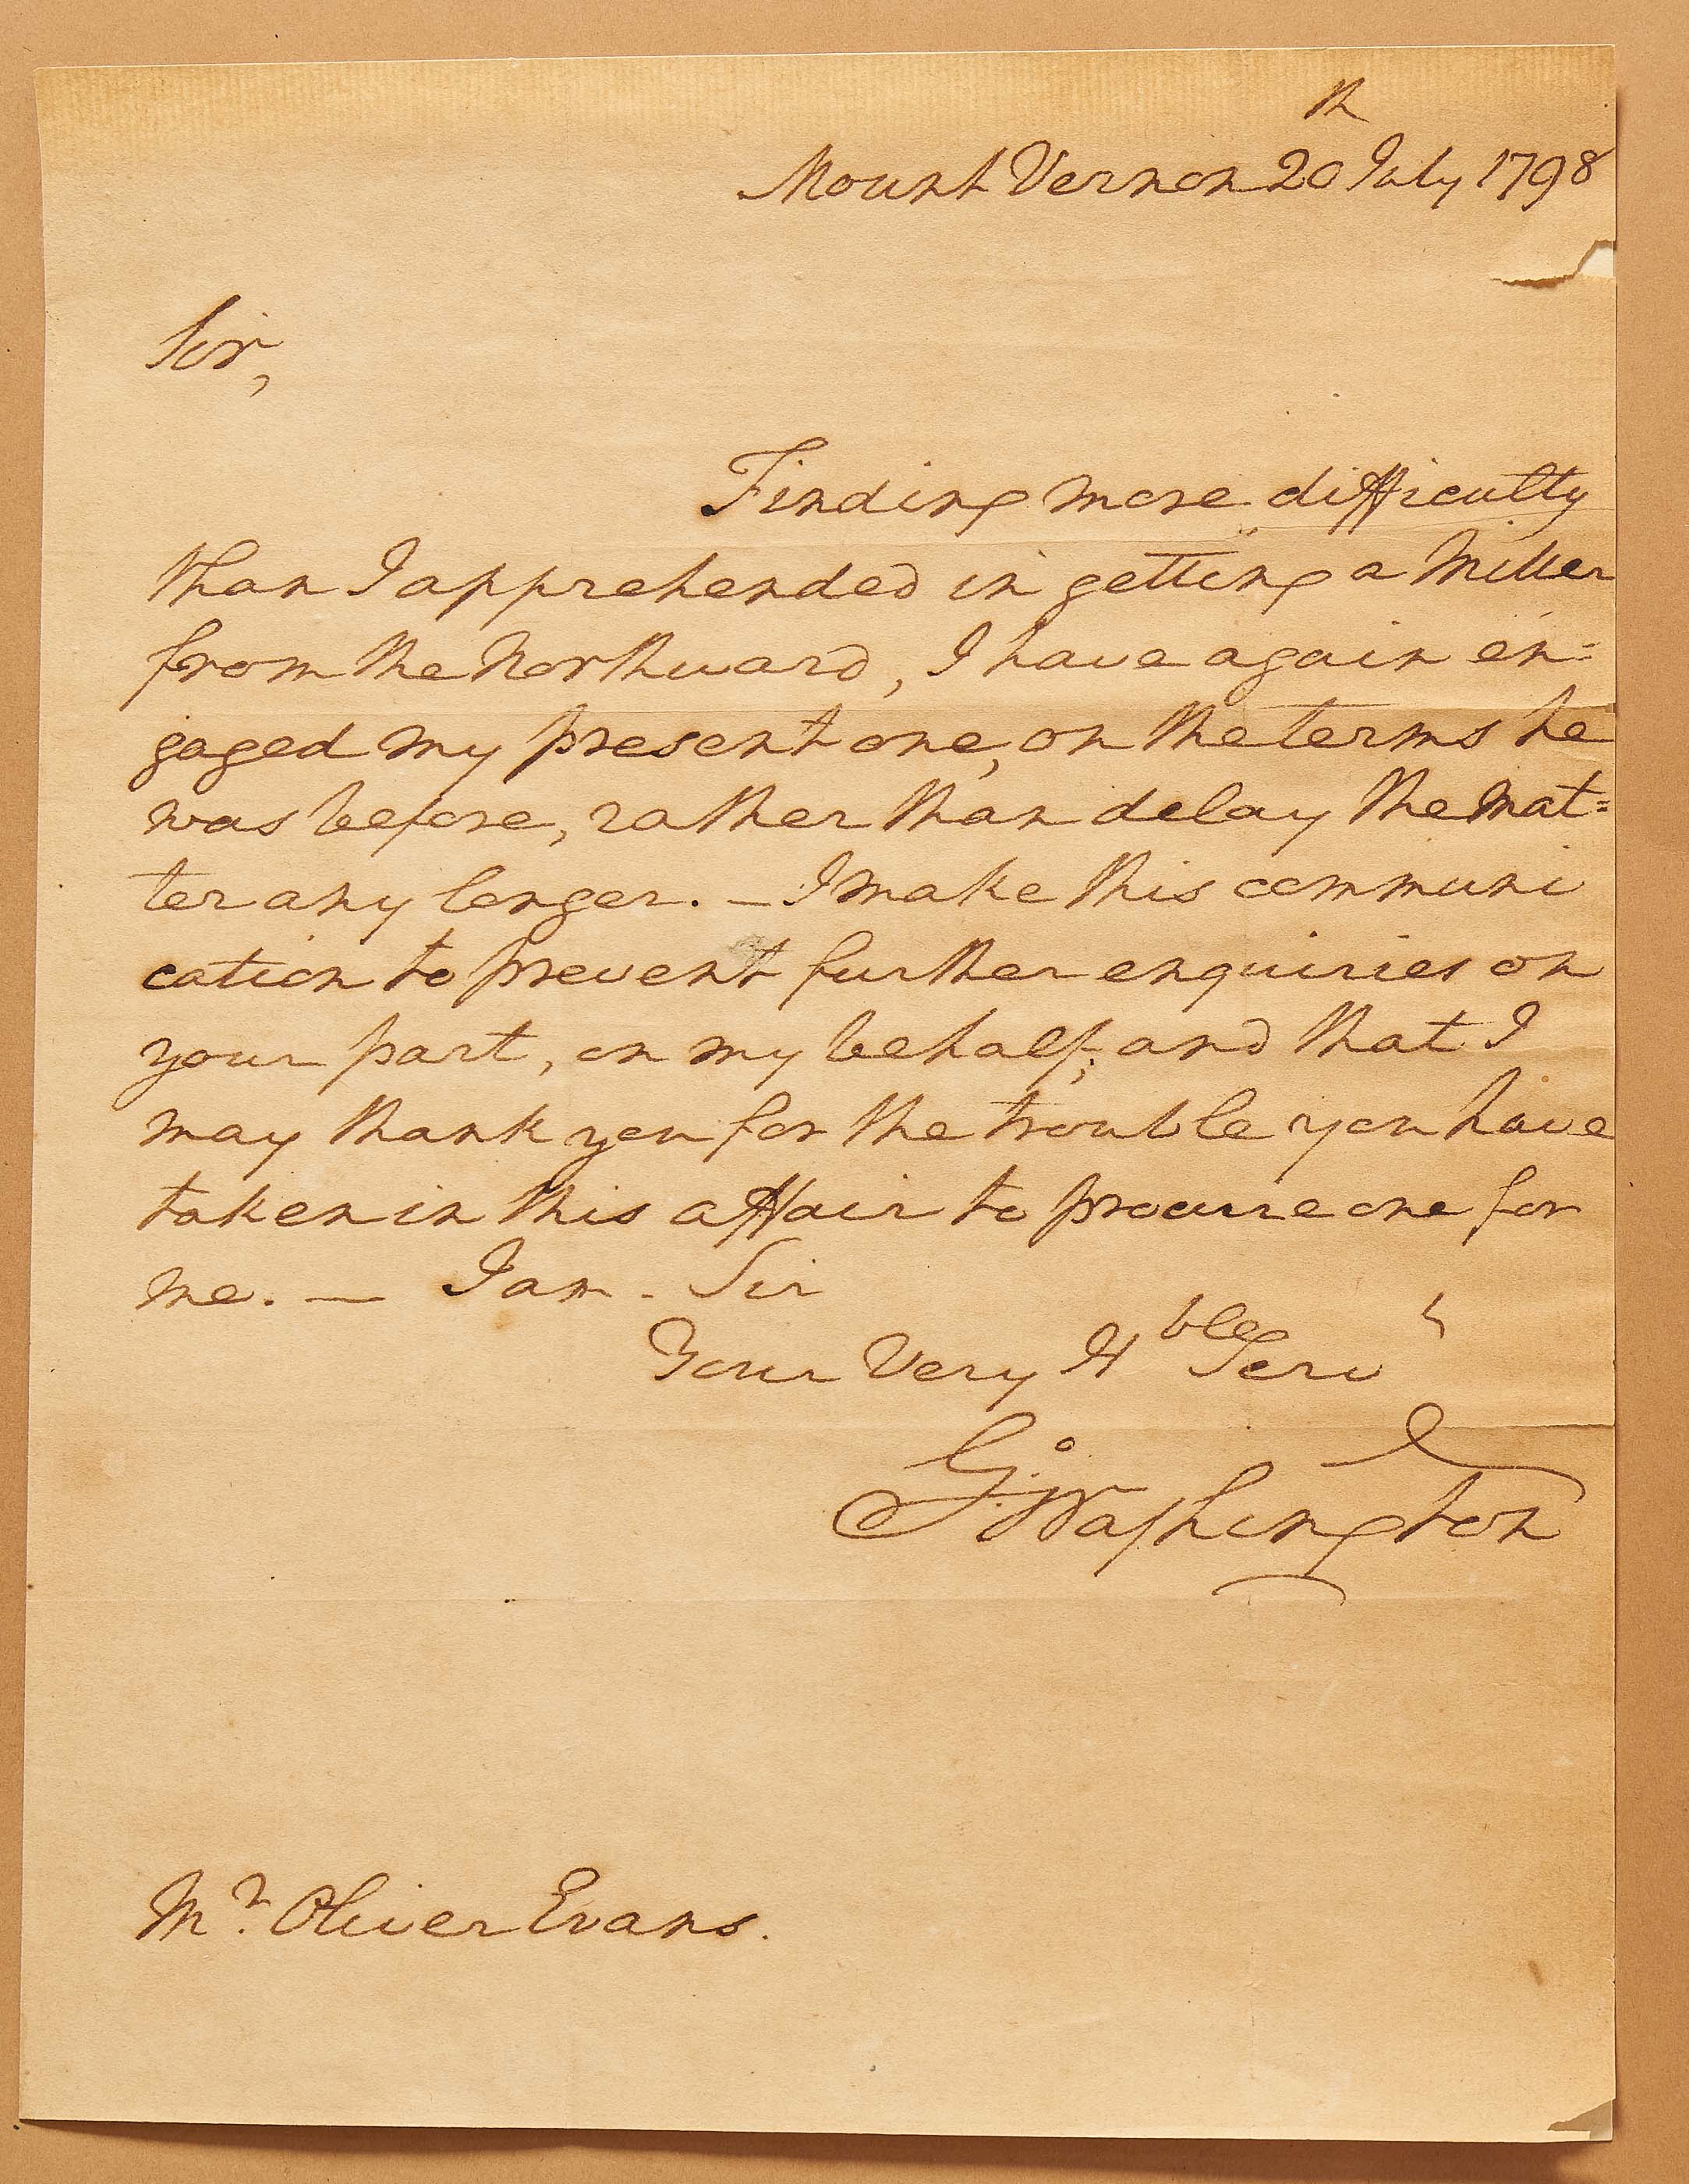 Mount Vernon 20th July 1798
Sir,
Finding more difficulty
than I apprehended in getting a Miller
from the Northward, I have again en=
gaged my present one, on the terms he
was before, rather than delay the mat=
ter any longer. — I make this communi
cation to prevent further enquiries on
your part, on my behalf; and that I
may thank you for the trouble you have
taken in this affair to procure one for
me. — I am - Sir
Your Very Hble Servt
Go: Washington
Mr. Oliver Evans.